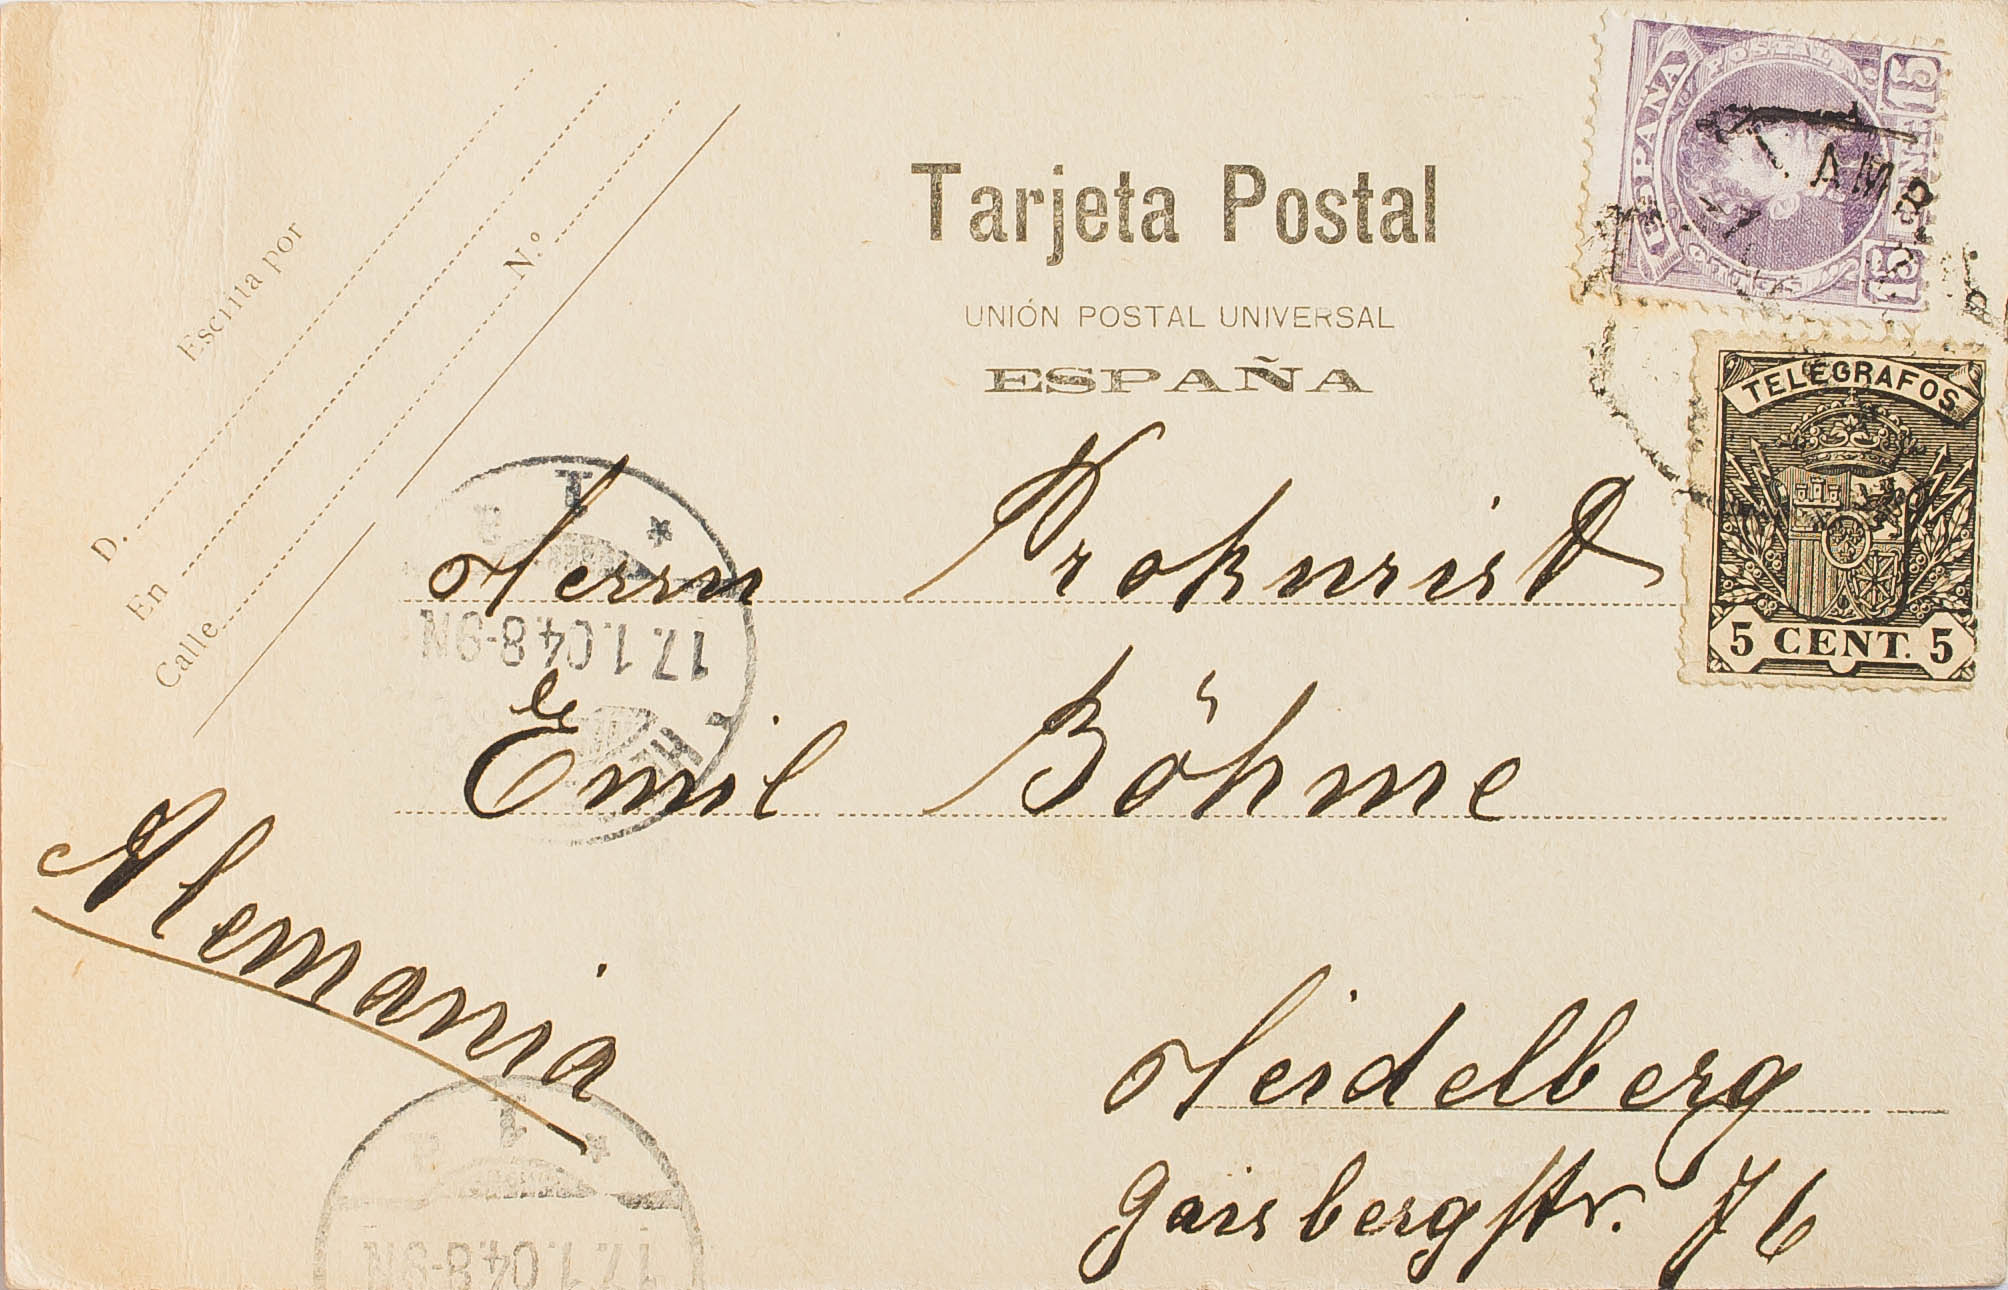 Escrita por
D.
En
Calle
N.º
Tarjeta Postal
UNIÓN POSTAL UNIVERSAL
ESPAÑA
ESPAÑA
15
15
AMB
TELEGRAFOS
5 CENT. 5
Herrn Prokurist
Emil Böhme
Alemania
Heidelberg
Gaisbergstr. 76
17.1.04.8-9N
17.1.04.8-9N